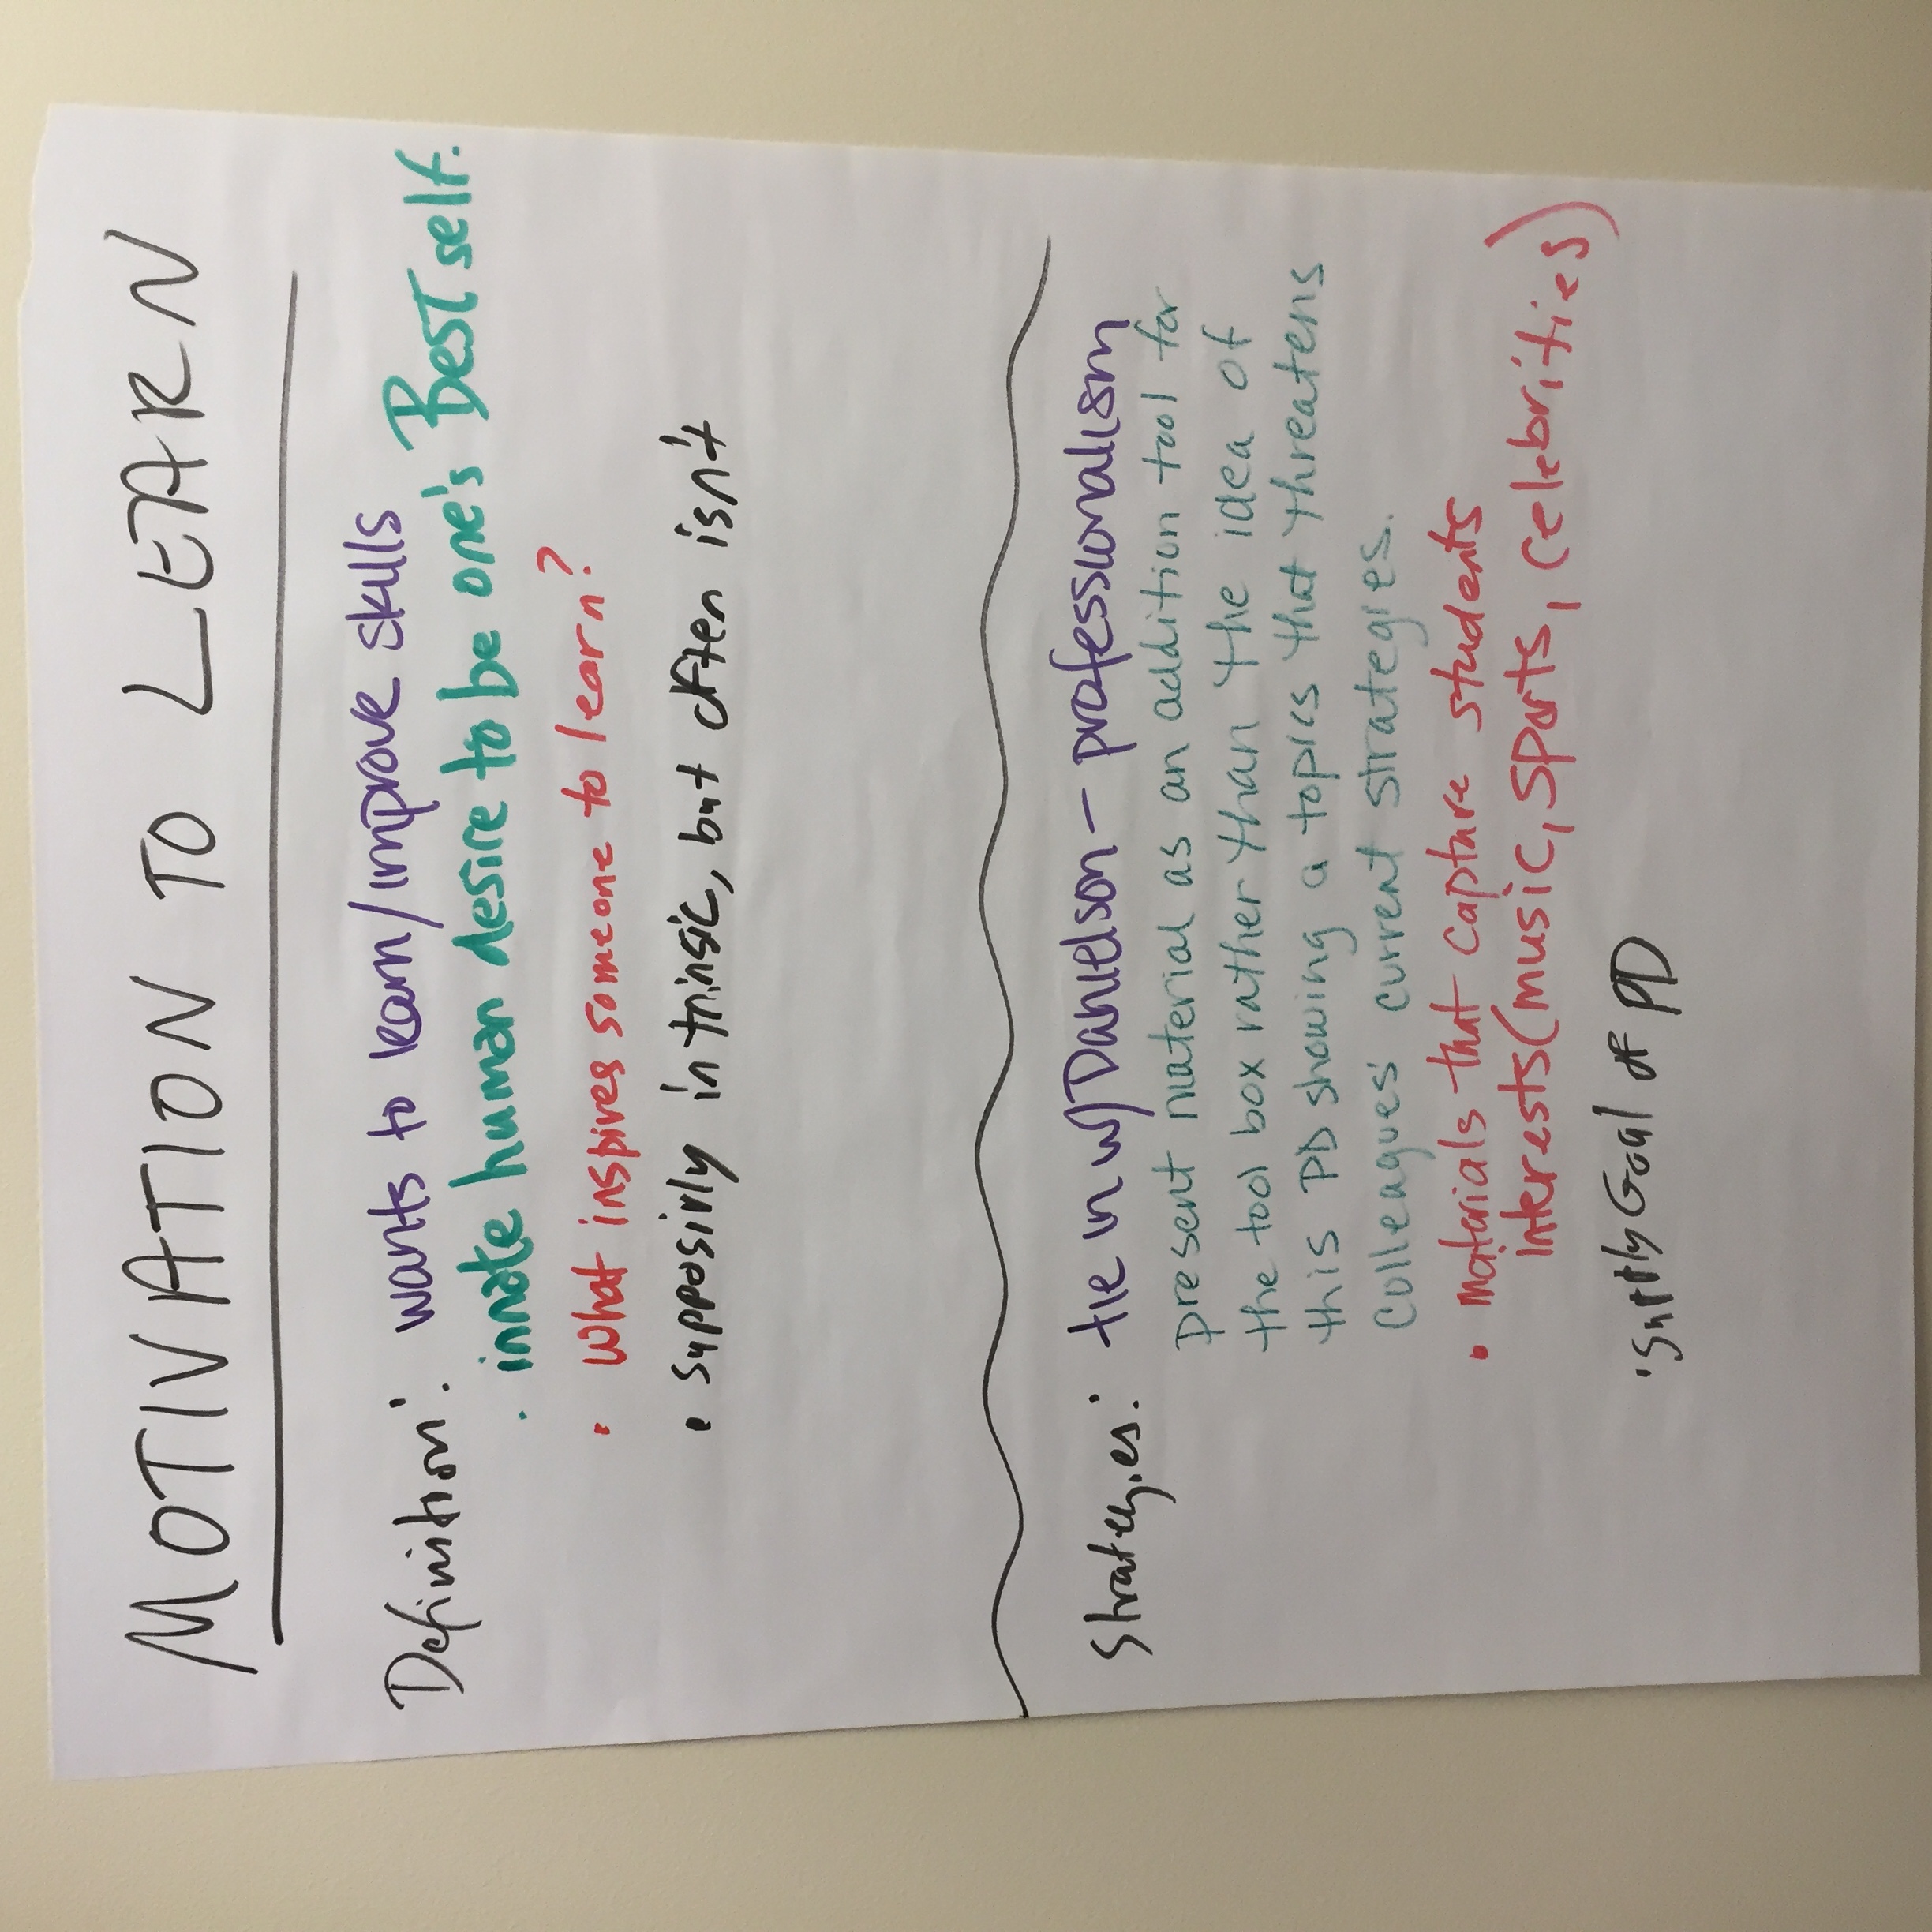 MOTIVATION TO LEARN
Definition: wants to learn/improve skills
· innate human desire to be one's BEST self.
• What inspires someone to learn?
• supposinly intrinsic, but often isn't
Strategies: tie in w/Danielson - professionalism
present material as an addition tool for
the tool box rather than the idea of
this PD showing a topics that threatens
colleagues' current strategies.
• materials that capture students
interests (music, sports, celebrities)
Goal of PD